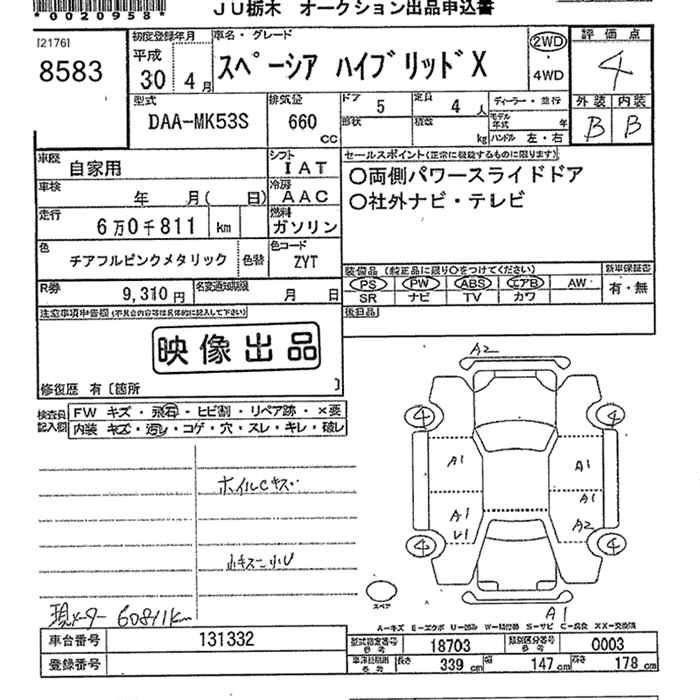 *0020958*
JU栃木 オークション出品申込書
[2176]
8583
初度登録年月
平成
30 4月
車名・グレード
スペーシア ハイブリッドX
2WD
4WD
評価点
4
外装 内装
B B
型式
DAA-MK53S
排気量
660 CC
ドア 5
定員 4人
形状
積数 kg
ディーラー・並行
モデル年式 年
ハンドル 左・右
車歴 自家用
シフト IAT
車検 年 月( 日)
冷房 AAC
走行 6万0千811 km
燃料 ガソリン
色 チアフルピンクメタリック
色替
色コード ZYT
R券 9,310円
名変通知期限 月 日
セールスポイント(正常に機能するものに限ります)
○両側パワースライドドア
○社外ナビ・テレビ
装備品(純正品に限り○をつけてください)
PS PW ABS エアB AW
SR ナビ TV カワ
新車保証書
有・無
後日品
注意事項申告欄(不具合内容等は具体的に記入して下さい)
映像出品
修復歴 有〔箇所 〕
検査員記入欄
FW キズ・飛石・ヒビ割・リペア跡・×要
内装 キズ・汚レ・コゲ・穴・スレ・キレ・破レ
ホイルCキズ
小キズ小U
現メーター 60811km
A2
4 4
A1 A1
A1
A1 A2
U1
4 4
スペア
A1
A-キズ E-エクボ U-凹み W-補修跡 S-サビ C-腐食 XX-交換済
車台番号 131332
登録番号
型式指定番号 参考 18703
類別区分番号 参考 0003
車両総制限 参考 長さ 339cm 幅 147cm 高さ 178cm